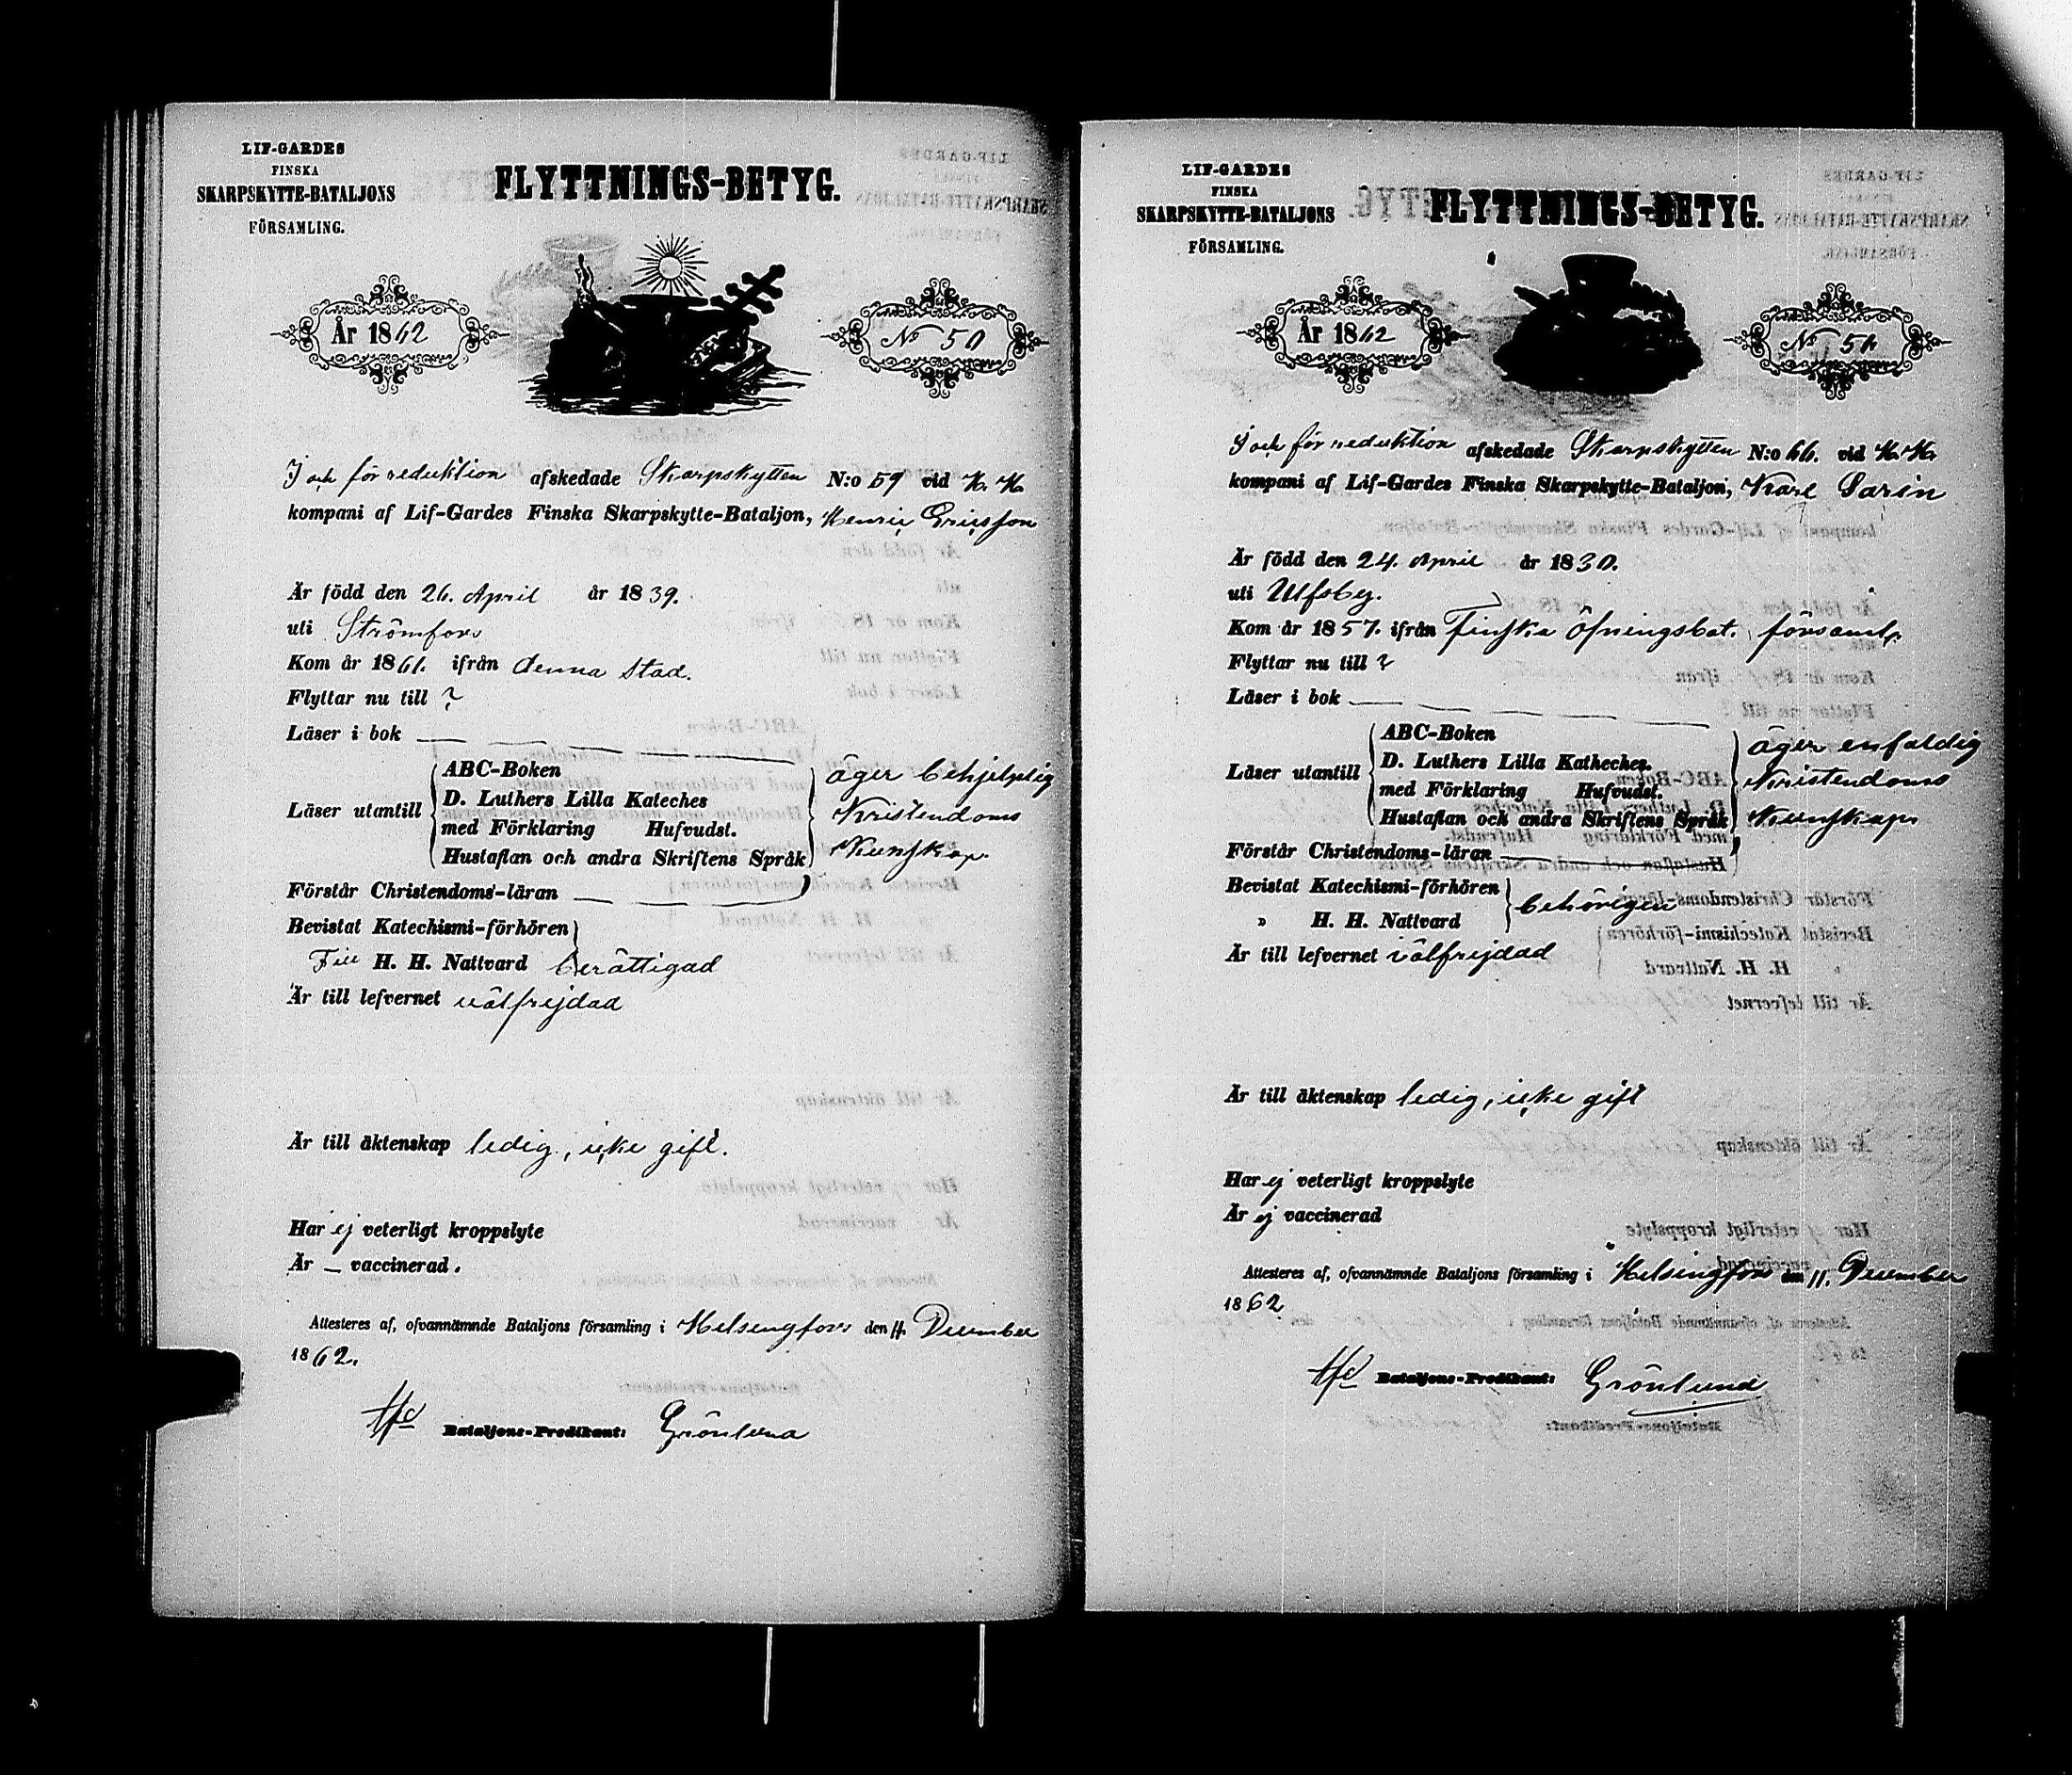 LIF-GARDES
FINSKA
SKARPSKYTTE-BATALJONS
FÖRSAMLING.
FLYTTNINGS-BETYG.
År 1862
No 50
I och för reduktion afskedade Skarpskytten N:o 59 vid K. K.
kompani af Lif-Gardes Finska Skarpskytte-Bataljon, Henric Ericsson
Är född den 26. April år 1839.
uti Strömfors
Kom år 1861. ifrån denna stad.
Flyttar nu till ?
Läser i bok
Läser utantill
ABC-Boken
D. Luthers Lilla Kateches
med Förklaring Hufvudst.
Hustaflan och andra Skriftens Språk
äger behjelplig
Kristendoms
Kunskap.
Förstår Christendoms-läran
Bevistat Katechismi-förhören
Till H. H. Nattvard berättigad
Är till lefvernet välfrejdad
Är till äktenskap ledig, icke gift.
Har ej veterligt kroppslyte
Är — vaccinerad.
Attesteres af, ofvannämnde Bataljons församling i Helsingfors den 11. December
1862.
Bataljons-Predikant: Grönlund
LIF-GARDES
FINSKA
SKARPSKYTTE-BATALJONS
FÖRSAMLING.
FLYTTNINGS-BETYG.
År 1862
No 51
I och för reduktion afskedade Skarpskytten N:o 66. vid K. K.
kompani af Lif-Gardes Finska Skarpskytte-Bataljon, Karl Sarin
Är född den 24. April år 1830.
uti Ulfsby.
Kom år 1857. ifrån Finska Öfningsbat. församl.
Flyttar nu till ?
Läser i bok
Läser utantill
ABC-Boken
D. Luthers Lilla Katheches.
med Förklaring Hufvudst.
Hustaflan och andra Skriftens Språk
äger enfaldig
Kristendoms
Kunskap
Förstår Christendoms-läran
Bevistat Katechismi-förhören
" H. H. Nattvard
behörigen
Är till lefvernet välfrejdad
Är till äktenskap ledig, icke gift
Har ej veterligt kroppslyte
Är ej vaccinerad
Attesteres af, ofvannämnde Bataljons församling i Helsingfors den 11. December
1862
Bataljons-Predikant: Grönlund